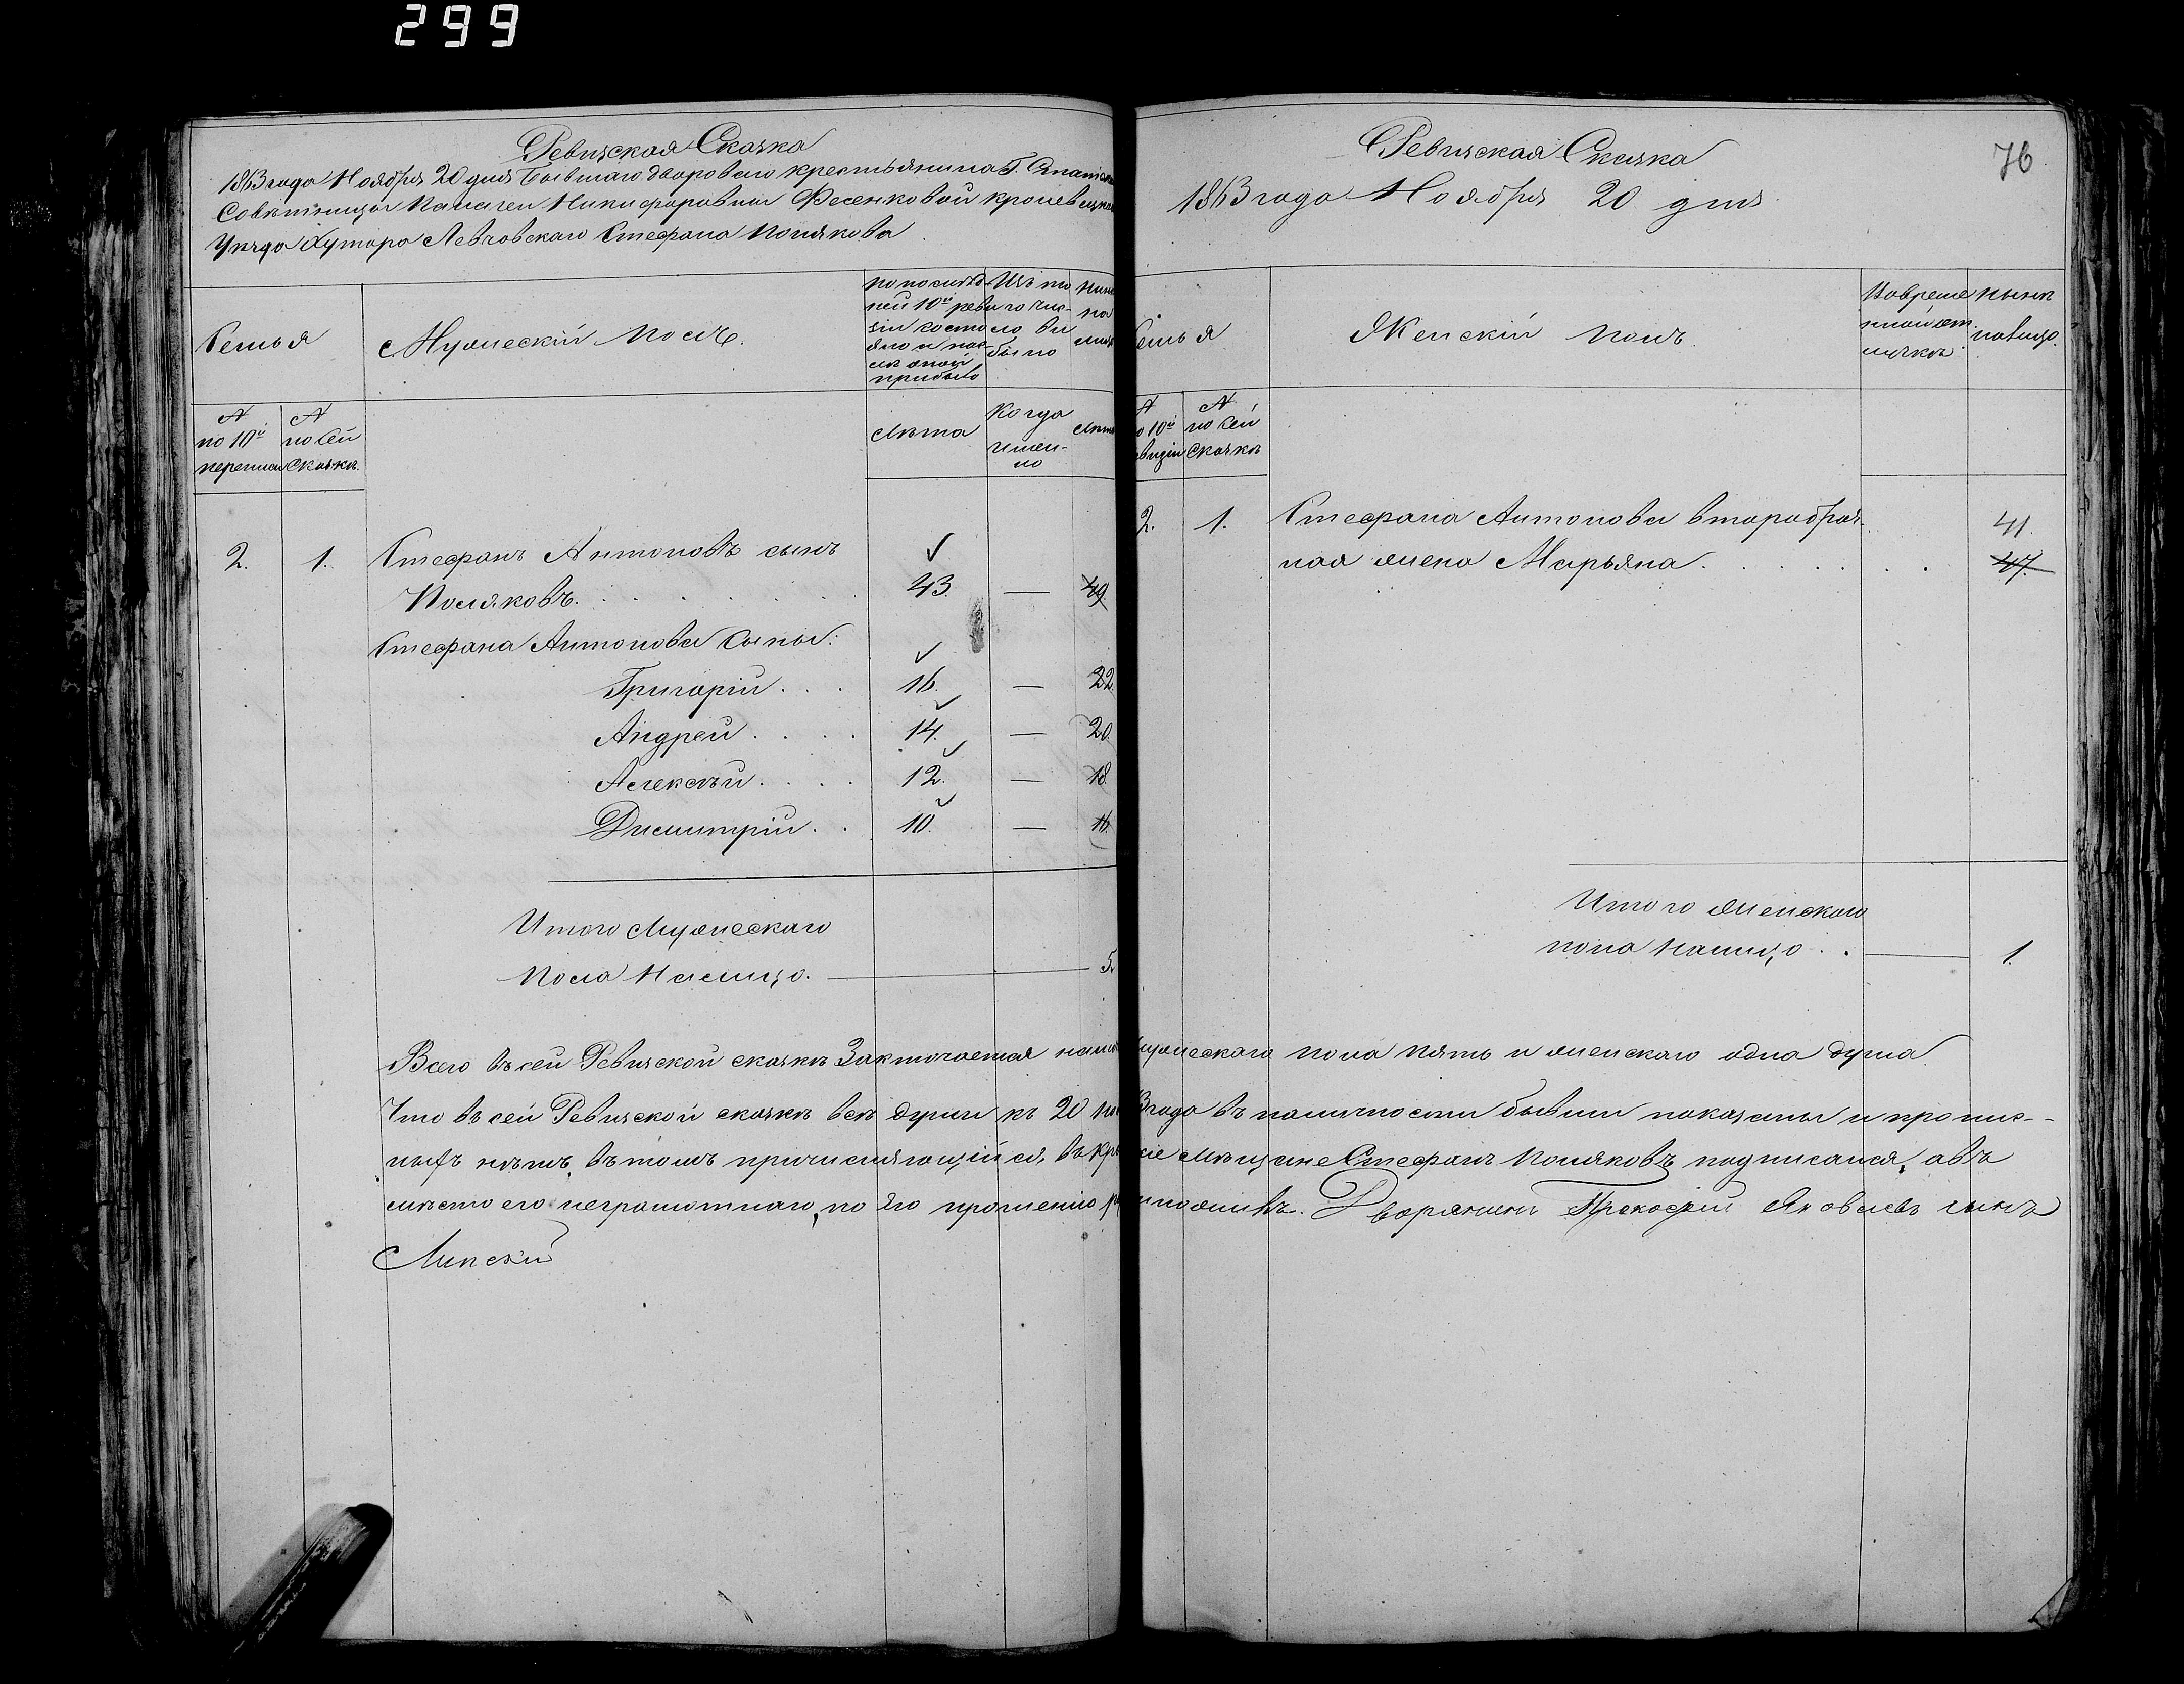 299
Ревизская Сказка
1863 года Ноября 20 дня Бывшаго дворового крестьянина Г. Статской
Совѣтницы Палагеи Никифоровны Фесенковой кролевецкаго
Уѣзда Хутора Левчовскаго Стефана Полякова
Семья
Мужескій полъ.
по послѣд-
ней 10й реви-
зіи состо-
яло и пос-
лѣ оной
прибыло
Изъ то
го чис-
ла вы
было
Нынѣ
на
лицо
№
по 10й
переписи
№
по сей
сказкѣ.
Лѣта
Когда
имен-
но
Лѣта
2. 1. Стефанъ Антоновъ сынъ
Поляковъ. 43. — 49.
Стефана Антонова Сыны:
Григорій . . . 16. — 22.
Андрей . . . . 14. — 20.
Алексѣй . . . . 12. — 18.
Дмитрій . . 10. — 16.
Итого Мужескаго
Пола Налицо. 5.
Ревизская Сказка
76.
1863 года Ноября 20 дня
Семья
Женскій полъ.
Во време
нной от
лучкѣ
нынѣ
на лицо.
№
по 10й
ревизіи
№
по сей
сказкѣ
2. 1. Стефана Антонова второбрач- 41.
ная жена Марьяна. 47.
Итого женскаго
пола налицо . . 1.
Всего въ сей Ревизской сказкѣ Заключается налицо мужескаго пола пять и женскаго одна душа.
Что въ сей Ревизской сказкѣ всѣ души къ 20 1863 года въ наличности бывши показаны и пропис-
ныхъ нѣтъ, въ томъ причисляющійся въ мѣщане Стефанъ Поляковъ подписался, а въ
мѣсто его неграмотнаго, по его прошенію росписался Дворянинъ Прокофій Яковлевъ сынъ
Липскій